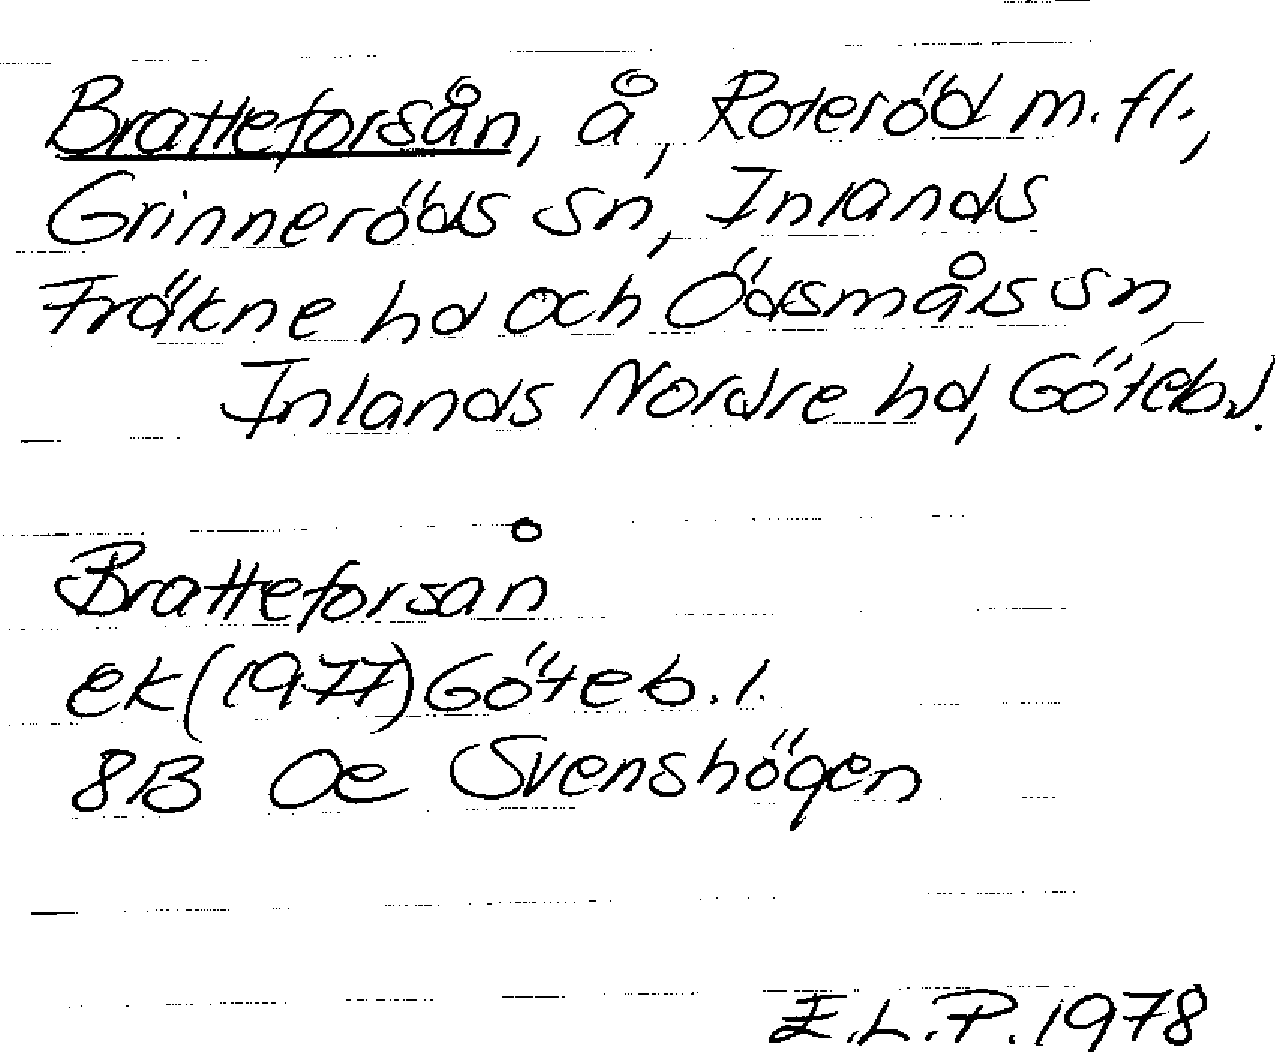 Bratteforsån, å, Roteröd m.fl.,
Grinneröds sn, Inlands
Fräkne hd och Ödsmåls sn,
Inlands Nordre hd, Göteb.l.
Bratteforsån
ek (1977) Göteb.l.
8B Oe Svenshögen
E.L.P. 1978